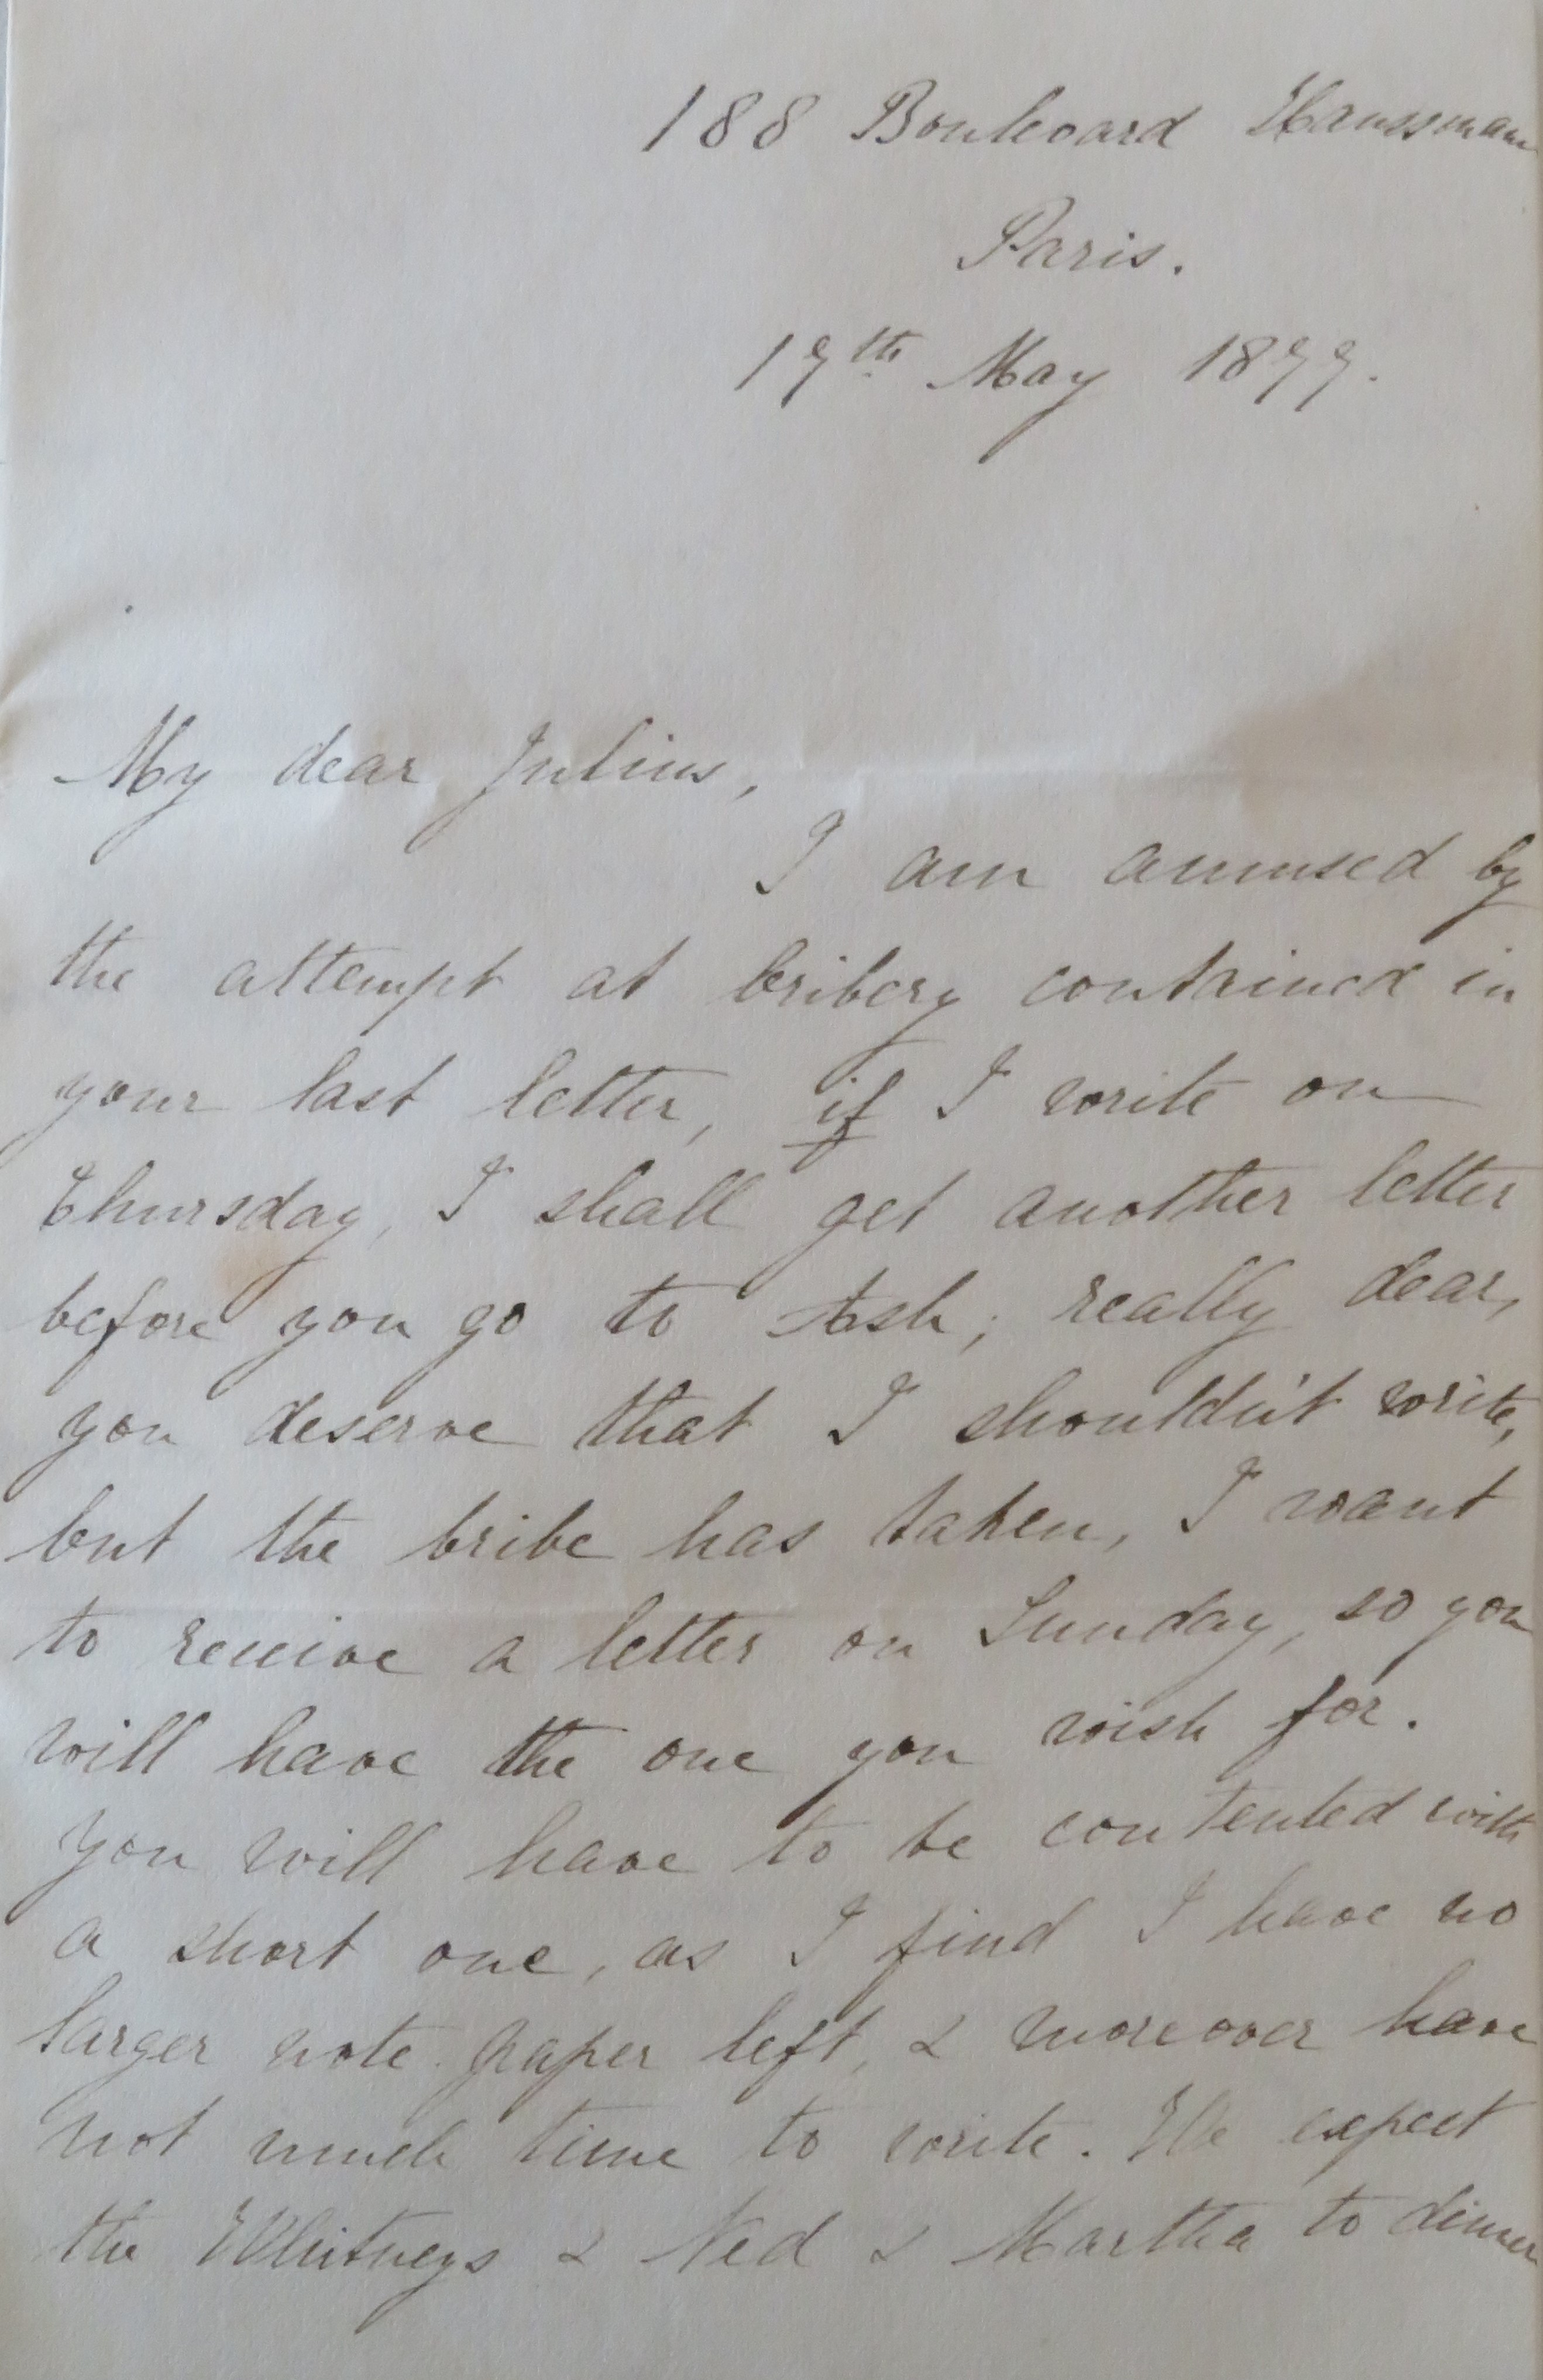 188 Boulevard Haussmann
Paris.
17th May 1877.
My dear Julius,
I am amused by
the attempt at bribery contained in
your last letter, if I write on
Thursday, I shall get another letter
before you go to Ash; really dear,
you deserve that I shouldn't write,
but the bribe has taken, I want
to receive a letter on Sunday, so you
will have the one you wish for.
You will have to be contented with
a short one, as I find I have no
larger note paper left, & moreover have
not much time to write. We expect
the Whitneys & Ned & Martha to dinner